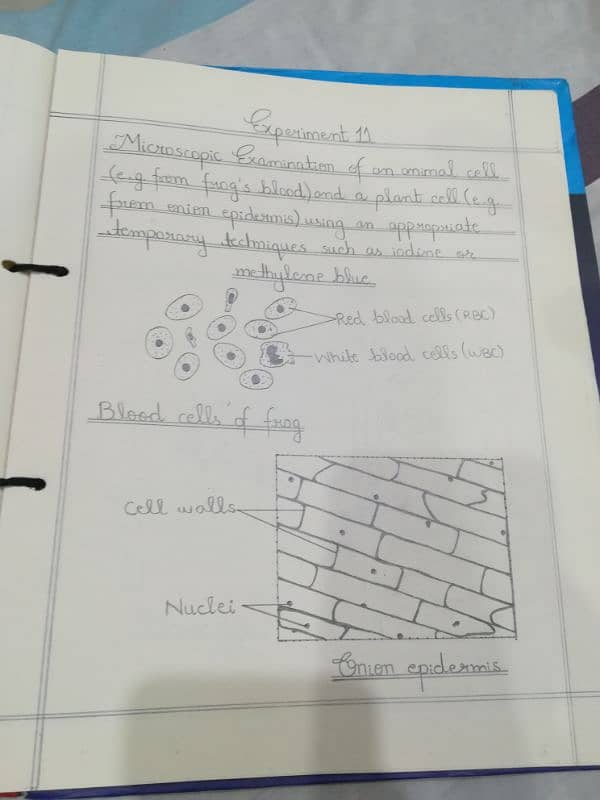 Experiment 11
Microscopic Examination of an animal cell
(e.g from frog's blood) and a plant cell (e.g
from onion epidermis) using an appropriate
temporary techniques such as iodine or
methylene blue
Red blood cells (RBC)
White blood cells (WBC)
Blood cells of frog
Cell walls
Nuclei
Onion epidermis